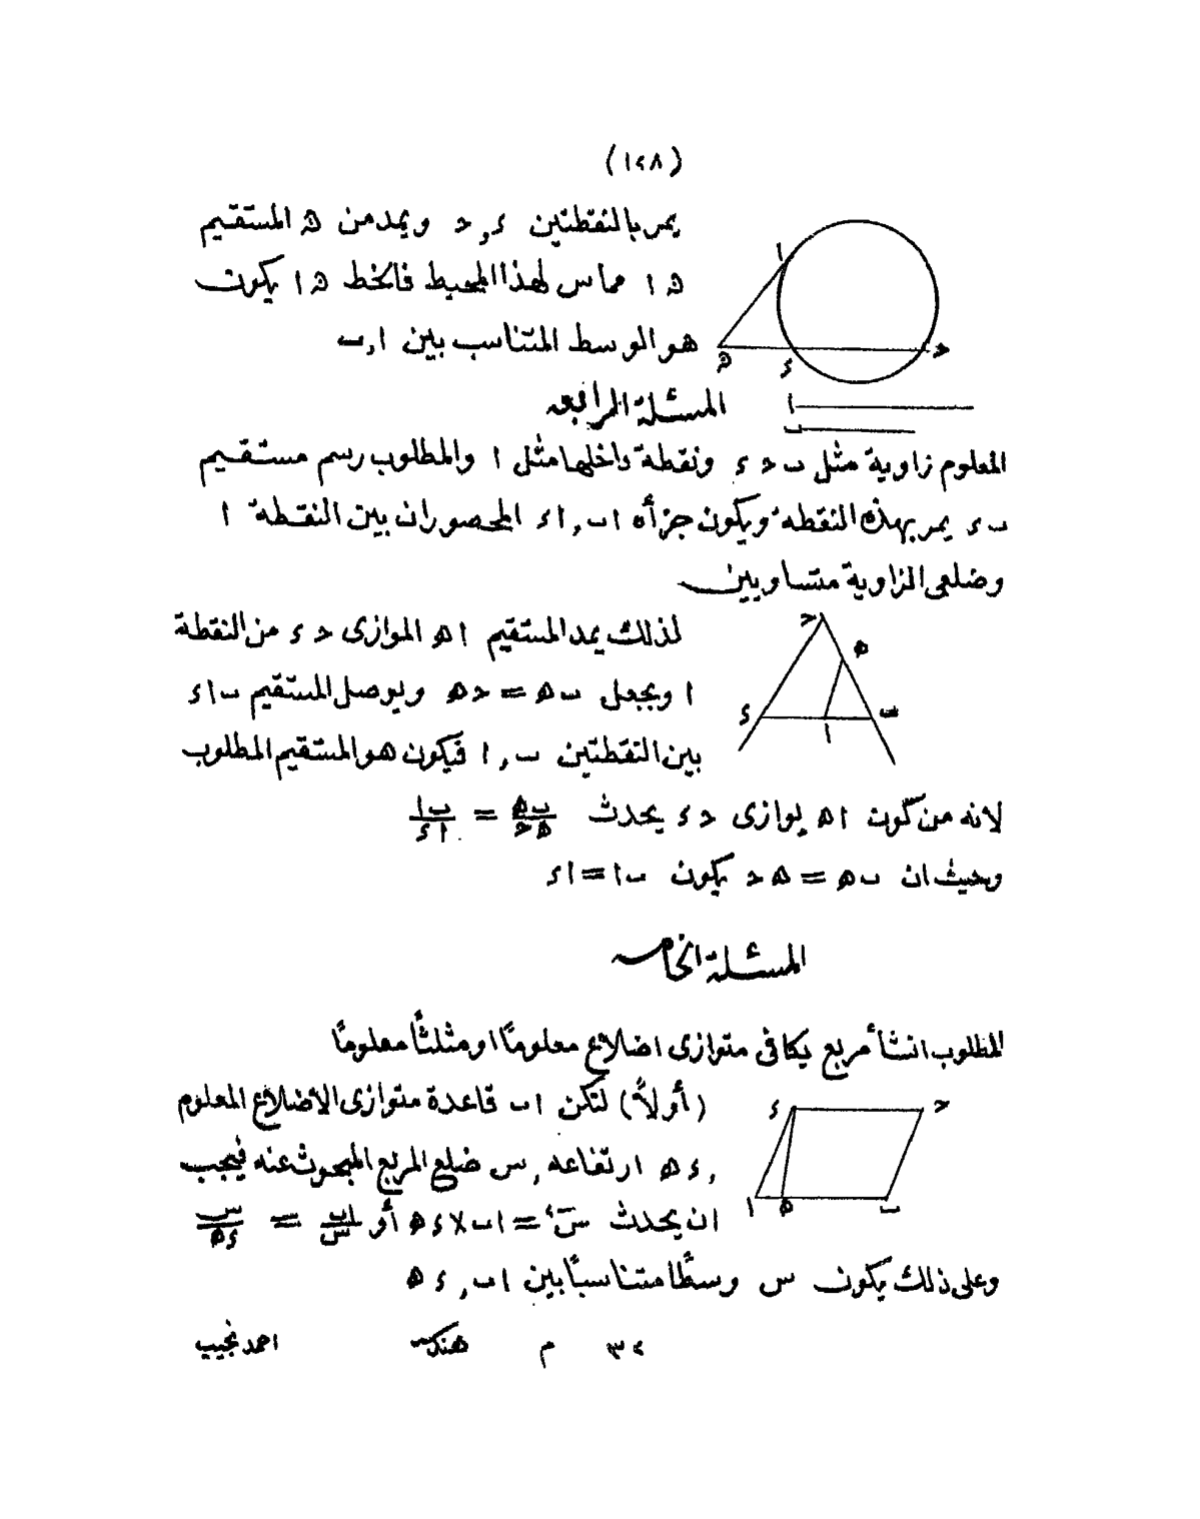 (١٢٨)
يمر بالنقطتين د , ح ويمد من ه المستقيم
ه ا مماس لهذا المحيط فالخط ه ا يكون
هو الوسط المتناسب بين ا , ب
ا
ح
ه
د
ا
ب
المسئلة الرابعه
المعلوم زاوية مثل ب ح د ونقطة داخلها مثل ا والمطلوب رسم مستقيم
ب د يمر بهذه النقطه ويكون جزأه ا ب , ا د المحصوران بين النقطة ا
وضلعى الزاوية متساويين
لذلك يمد المستقيم ا ه الموازى ح د من النقطة
ا ويجعل ب ه = ح ه ويوصل المستقيم ب ا د
بين النقطتين ب , ا فيكون هو المستقيم المطلوب
ح
ه
د
ب
ا
لانه من كون ا ه يوازى ح د يحدث ب ه / ه ح = ب ا / ا د
وحيث ان ب ه = ه ح يكون ب ا = ا د
المسئلة الخامسه
المطلوب انشأ مربع يكافى متوازى اضلاع معلومًا او مثلثًا معلومًا
(أولاً) لتكن ا ب قاعدة متوازى الاضلاع المعلوم
, د ه ارتفاعه , س ضلع المربع المبحوث عنه فيجب
ان يحدث س٢ = ا ب × د ه أو ا ب / س = س / د ه
د
ح
ا
ه
ب
وعلى ذلك يكون س وسطًا متناسبًا بين ا ب , د ه
٣٢ م هندسه احمد نجيب